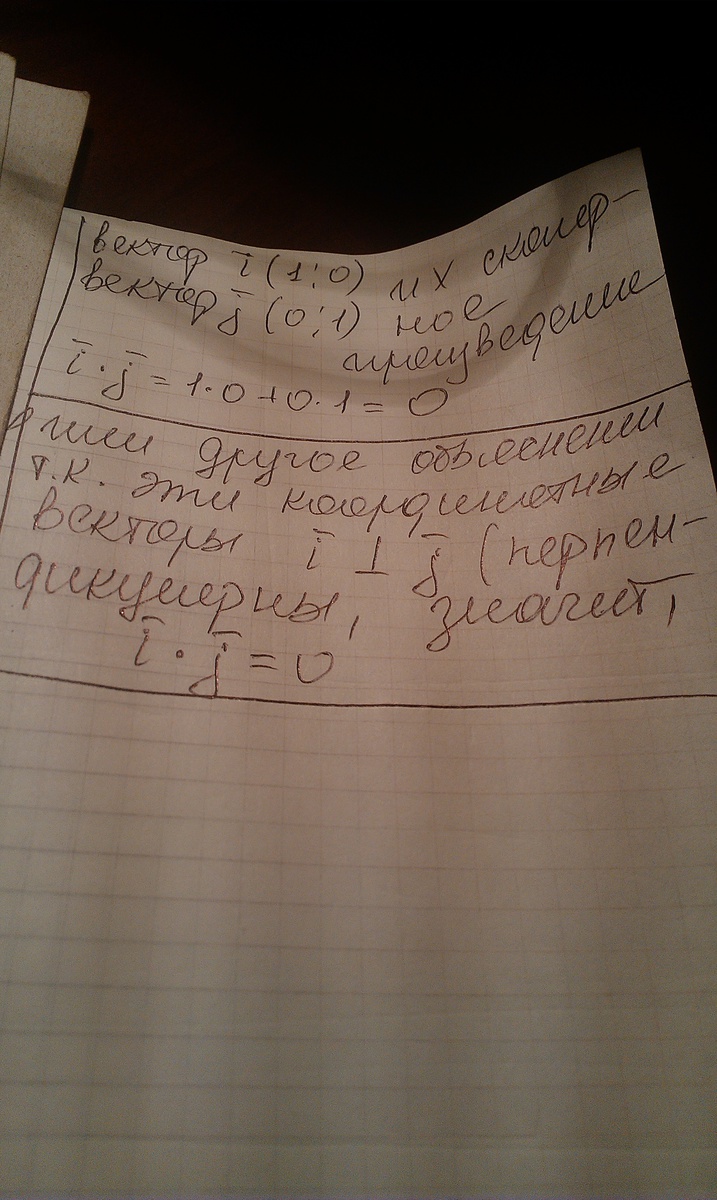 вектор i̅ (1; 0) их скаляр-
вектор j̅ (0; 1) ное
произведение
i̅ · j̅ = 1·0 + 0·1 = 0
или другое объяснении
т.к. эти координатные
векторы i̅ ⊥ j̅ (перпен-
дикулярны, значит,
i̅ · j̅ = 0